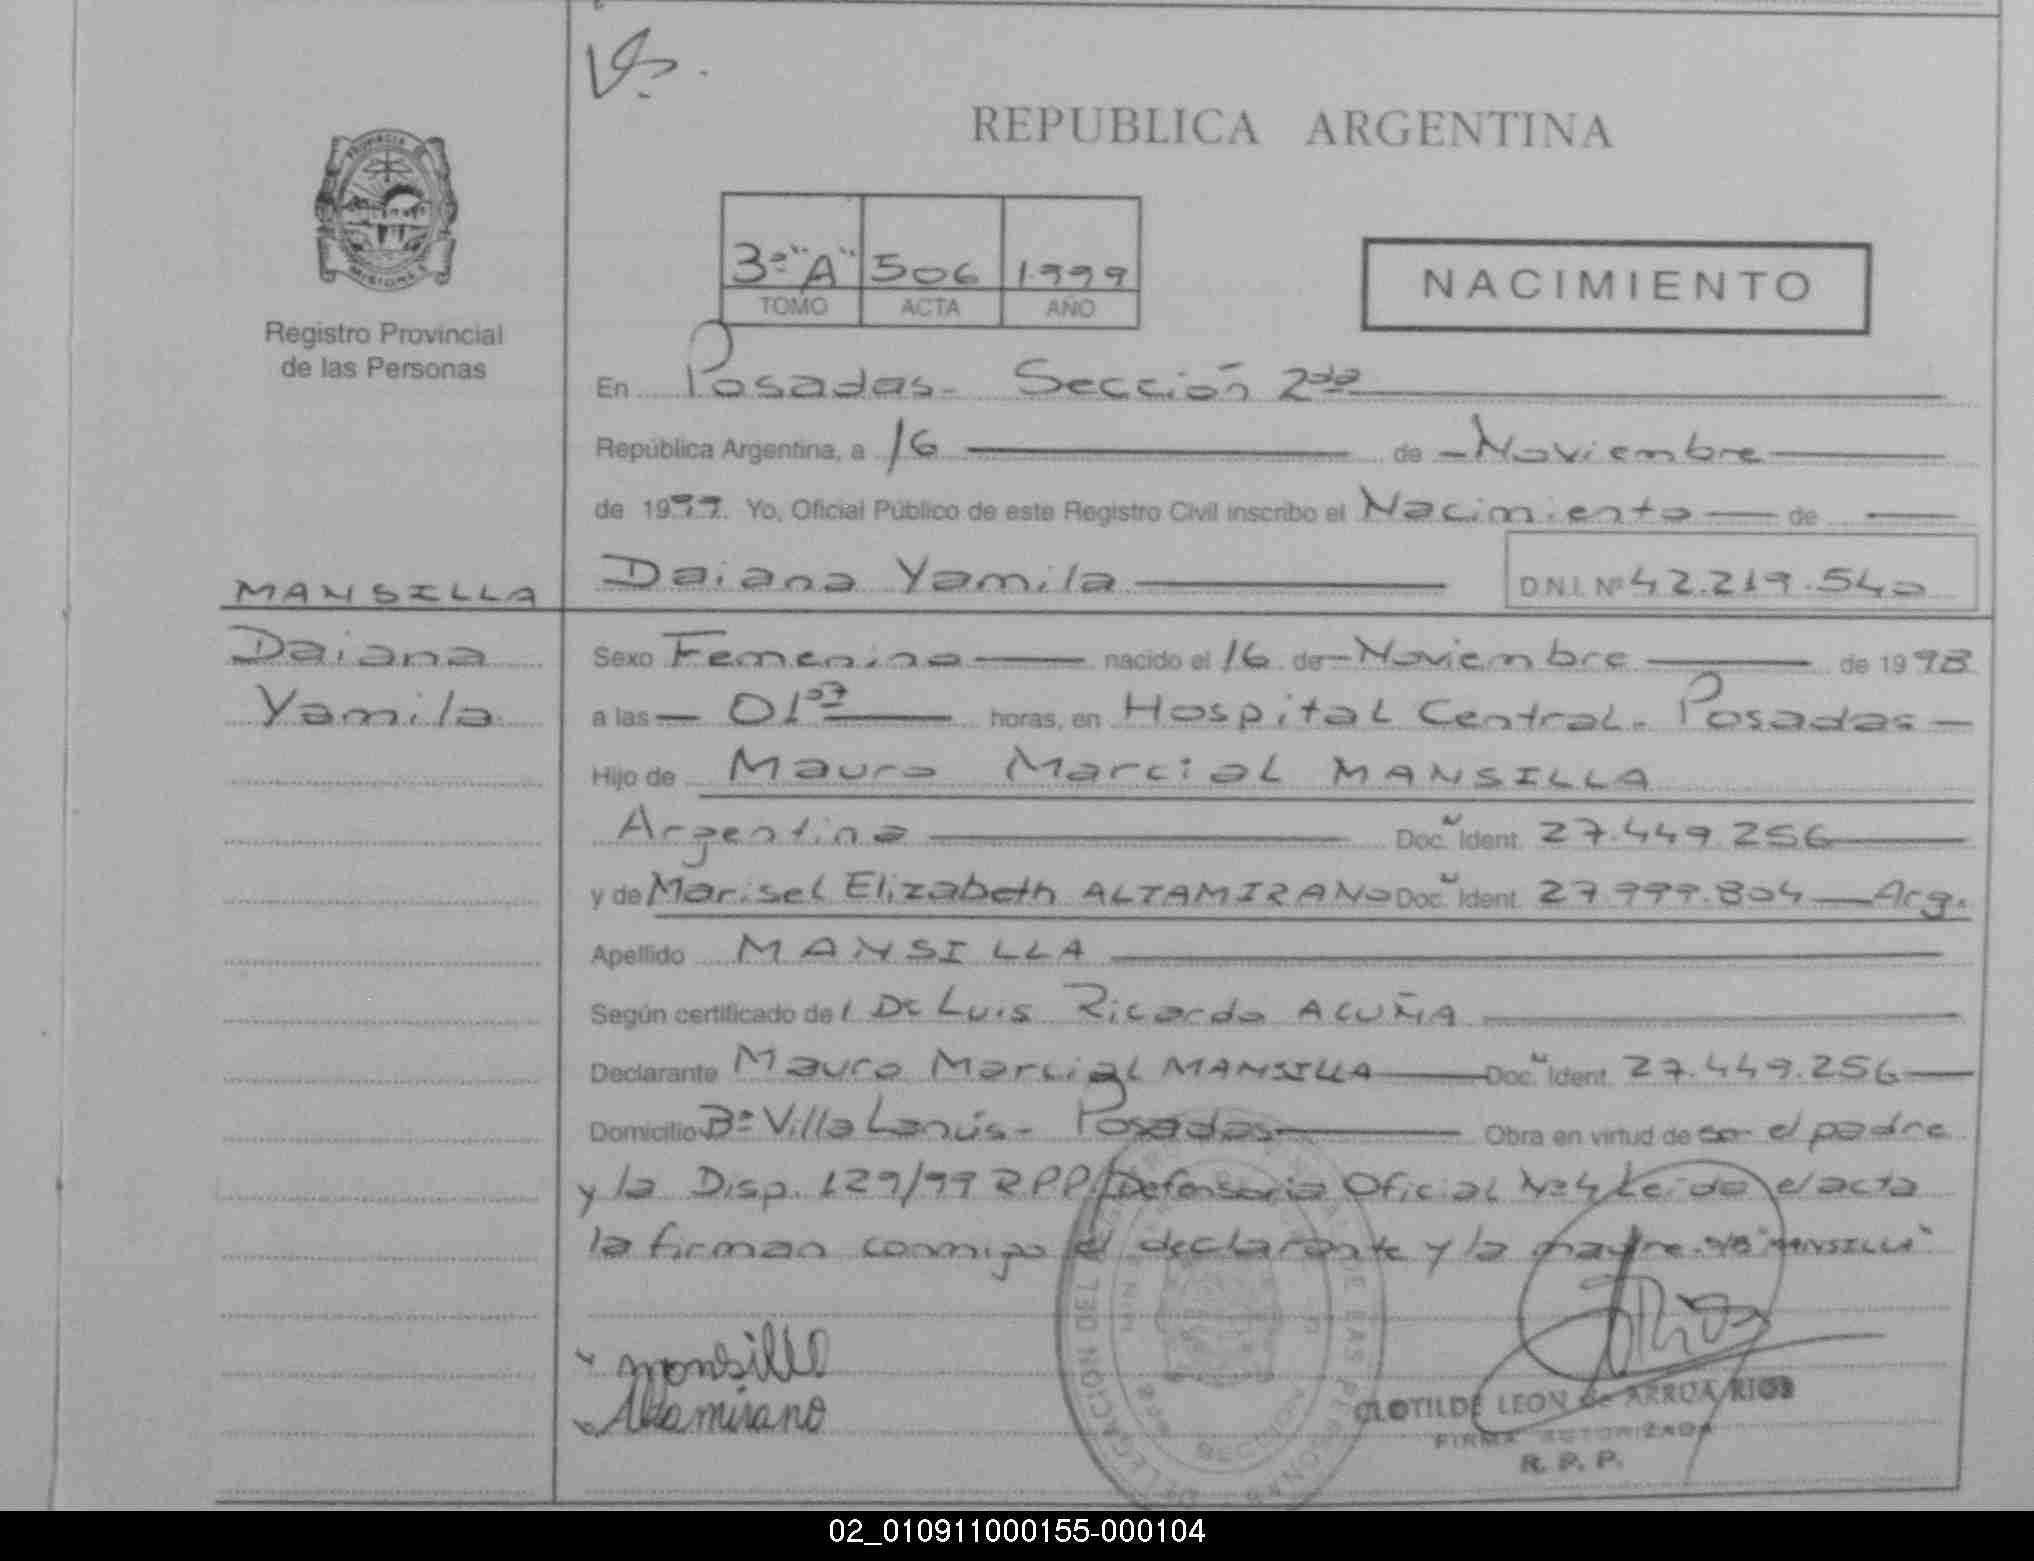 REPUBLICA ARGENTINA
PROVINCIA DE
MISIONES
Registro Provincial
de las Personas
3º "A" 506 1.999
TOMO ACTA AÑO
NACIMIENTO
En Posadas- Sección 2da
República Argentina, a 16 de Noviembre
de 1999. Yo, Oficial Público de este Registro Civil inscribo el Nacimiento de
MANSILLA
Daiana Yamila D.N.I. Nº 42.219.540
Daiana
Yamila
Sexo Femenino nacido el 16 de Noviembre de 1998
a las 01 07 horas, en Hospital Central. Posadas
Hijo de Mauro Marcial MANSILLA
Argentina Doc. Ident. 27.449.256
y de Marisel Elizabeth ALTAMIRANO Doc. Ident. 27.999.804 Arg.
Apellido MANSILLA
Según certificado del Dr Luis Ricardo ACUÑA
Declarante Mauro Marcial MANSILLA Doc. Ident. 27.449.256
Domicilio Bº Villa Lanús- Posadas Obra en virtud de ser el padre
y la Disp. 129/99 RPP/Defensoria Oficial Nº4 Leida el acta
la firman conmigo el declarante y la madre. "MANSILLA"
mansilla
Altamirano
DELEGACION DEL REGISTRO PROVINCIAL DE LAS PERSONAS
SECCION
CLOTILDE LEON de ARRUA RIOS
FIRMA AUTORIZADA
R. P. P.
02_010911000155-000104